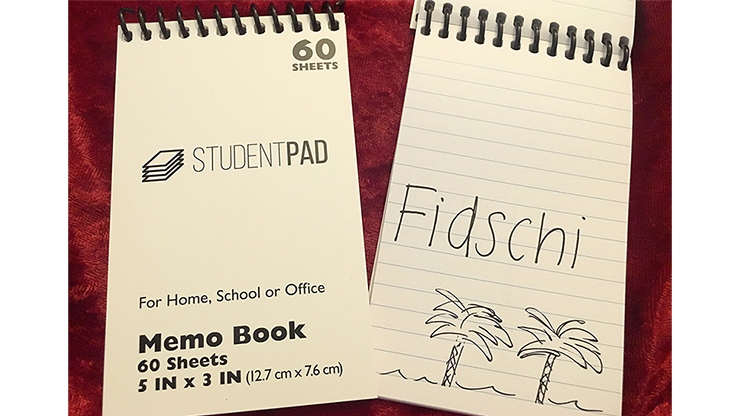 60
SHEETS
STUDENTPAD
For Home, School or Office
Memo Book
60 Sheets
5 IN x 3 IN (12.7 cm x 7.6 cm)
Fidschi